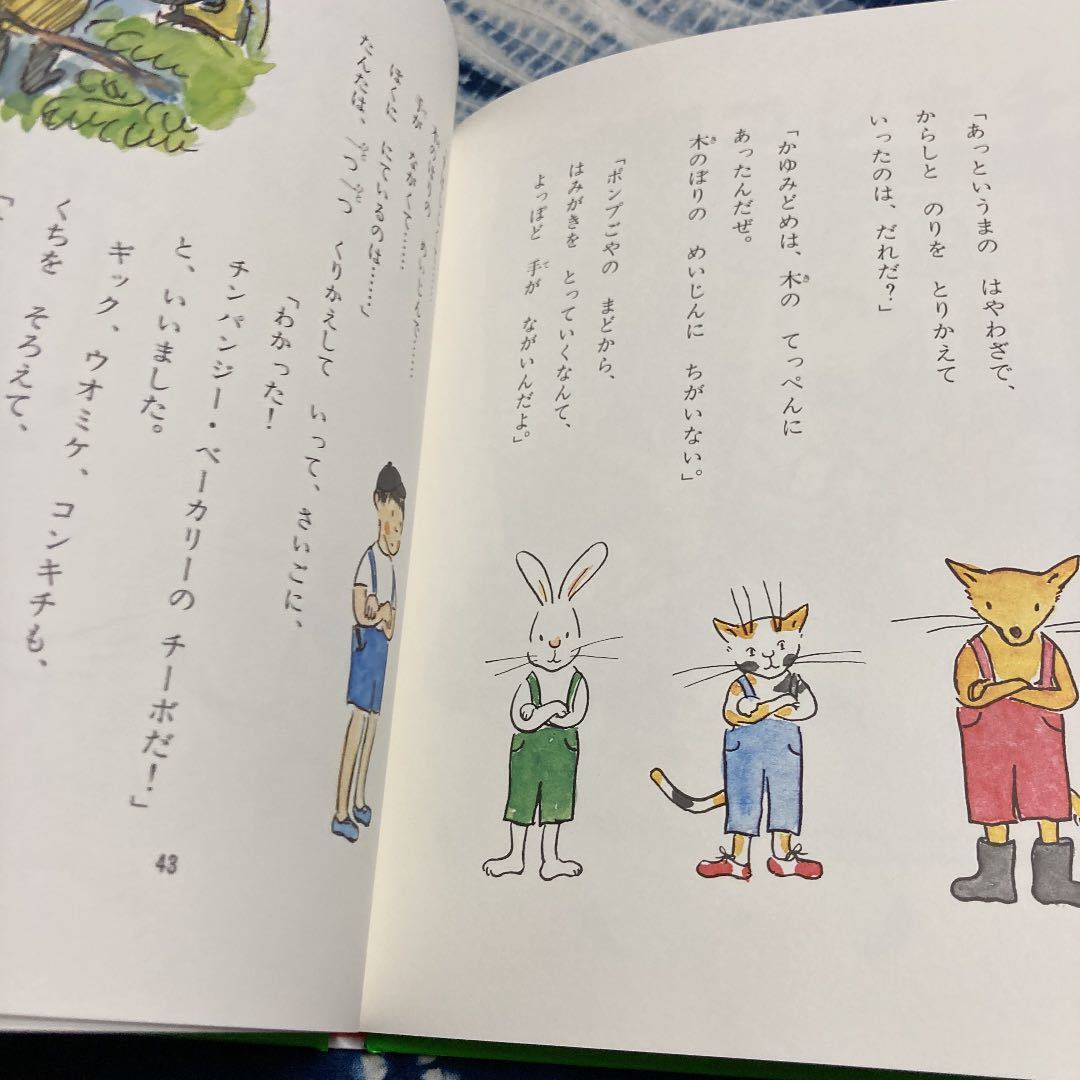 「あっというまの　はやわざで、
からしと　のりを　とりかえて
いったのは、だれだ？」
「かゆみどめは、木の　てっぺんに
あったんだぜ。
木のぼりの　めいじんに　ちがいない。」
「ポンプごやの　まどから、
はみがきを　とっていくなんて、
よっぽど　手が　ながいんだよ。」
木のぼりの　めいじんだ……
手が　ながくて……
ぼくに　にているのは……」
たんたは、一つ一つ　くりかえして　いって、さいごに、
「わかった！
チンパンジー・ベーカリーの　チーポだ！」
と、いいました。
ギック、ウオミケ、コンキチも、
くちを　そろえて、
43